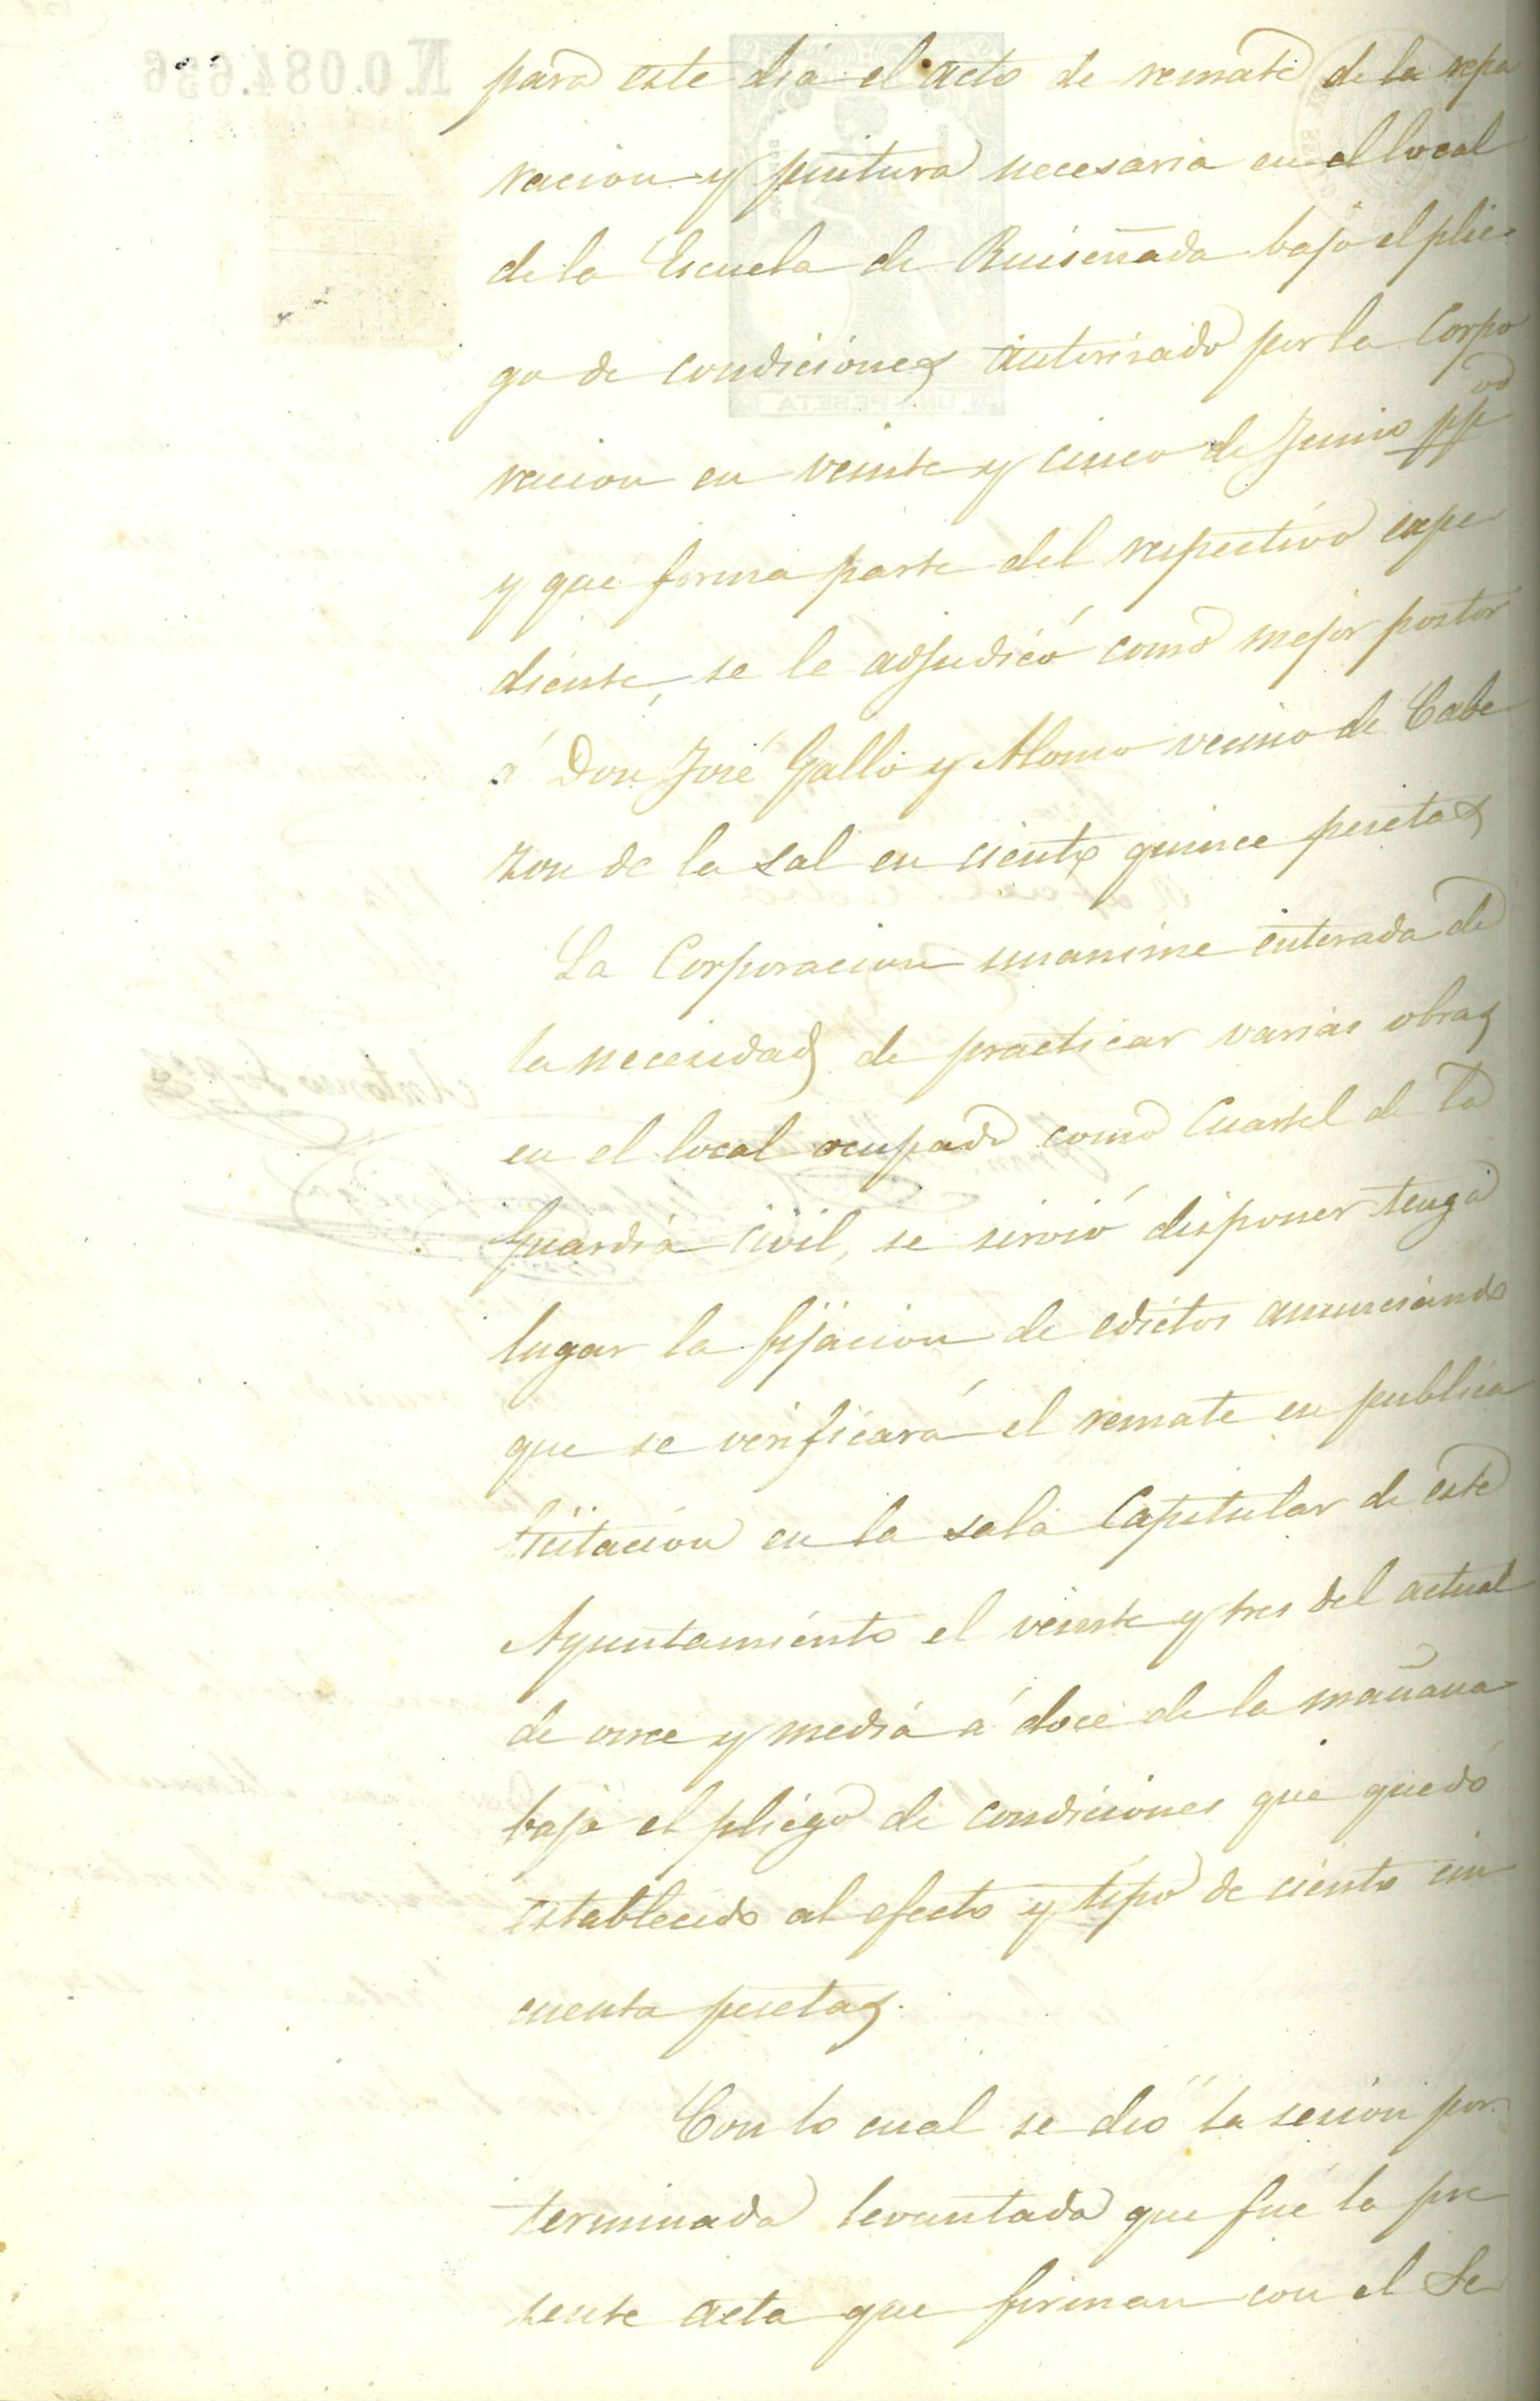 para este dia el acto de remate de la repa
racion y pintura necesaria en el local
de la Escuela de Ruiseñada bajo el plie-
go de condiciones autorisado por la Corpo
racion en veinte y cinco de Junio ppdo
y que forma parte del respectivo espe
diente, se le adjudicó como mejor postor
á Don José Gallo y Alonso vecino de Cabe
zon de la Sal en ciento quince pesetas
La Corporacion unanime enterada de
la necesidad de practicar varias obras
en el local ocupado como Cuartel de la
Guardia Civil, se sirvió disponer tenga
lugar la fijacion de edictos anunciando
que se verificará el remate en publica
licitacion en la sala Capitular de este
Ayuntamiento el veinte y tres del actual
de once y media á doce de la mañana
bajo el pliego de condiciones que quedó
establecido al efecto y tipo de ciento cin
cuenta pesetas.
Con lo cual se dió la sesion por
terminada levantada que fué la pre
sente acta que firman con el Se